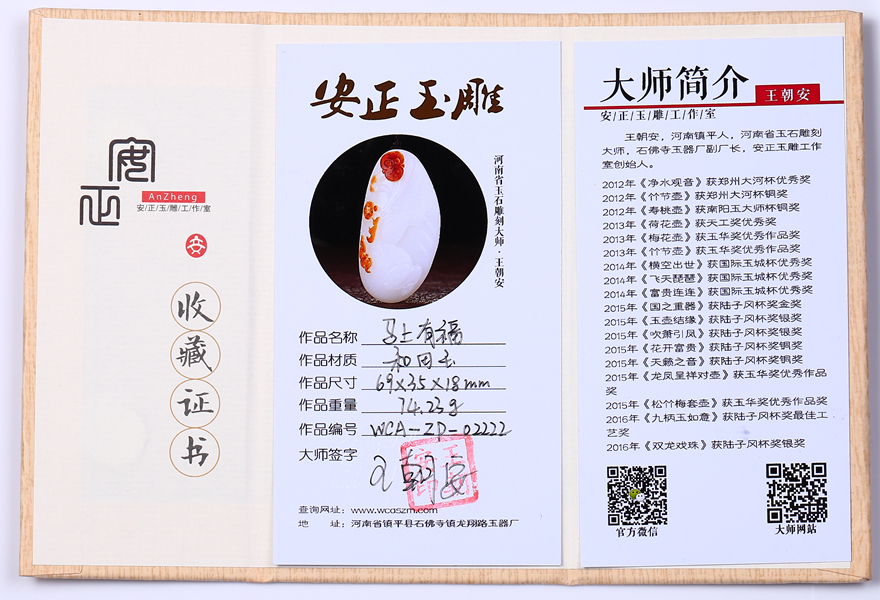 安正
AnZheng
安/正/玉/雕/工/作/室
安
收
藏
证
书
安正玉雕
河南省玉石雕刻大师·王朝安
作品名称 马上有福
作品材质 和田玉
作品尺寸 69×35×18mm
作品重量 74.23g
作品编号 WCA-ZP-02222
大师签字 王朝安
查询网址：www.wcaszm.com
地 址：河南省镇平县石佛寺镇龙翔路玉器厂
大师简介 王朝安
安/正/玉/雕/工/作/室
王朝安，河南镇平人，河南省玉石雕刻
大师，石佛寺玉器厂副厂长，安正玉雕工作
室创始人。
2012年《净水观音》获郑州大河杯优秀奖
2012年《竹节壶》获郑州大河杯铜奖
2012年《寿桃壶》获南阳玉大师杯铜奖
2013年《荷花壶》获天工奖优秀奖
2013年《梅花壶》获玉华奖优秀作品奖
2013年《竹节壶》获玉华奖优秀作品奖
2014年《横空出世》获国际玉城杯优秀奖
2014年《飞天琵琶》获国际玉城杯优秀奖
2014年《富贵连连》获国际玉城杯优秀奖
2015年《国之重器》获陆子冈杯奖金奖
2015年《玉壶结缘》获陆子冈杯奖银奖
2015年《吹箫引凤》获陆子冈杯奖银奖
2015年《花开富贵》获陆子冈杯奖铜奖
2015年《天籁之音》获陆子冈杯奖铜奖
2015年《龙凤呈祥对壶》获玉华奖优秀作品
奖
2015年《松竹梅套壶》获玉华奖优秀作品奖
2016年《九柄玉如意》获陆子冈杯奖最佳工
艺奖
2016年《双龙戏珠》获陆子冈杯奖银奖
官方微信
大师网站